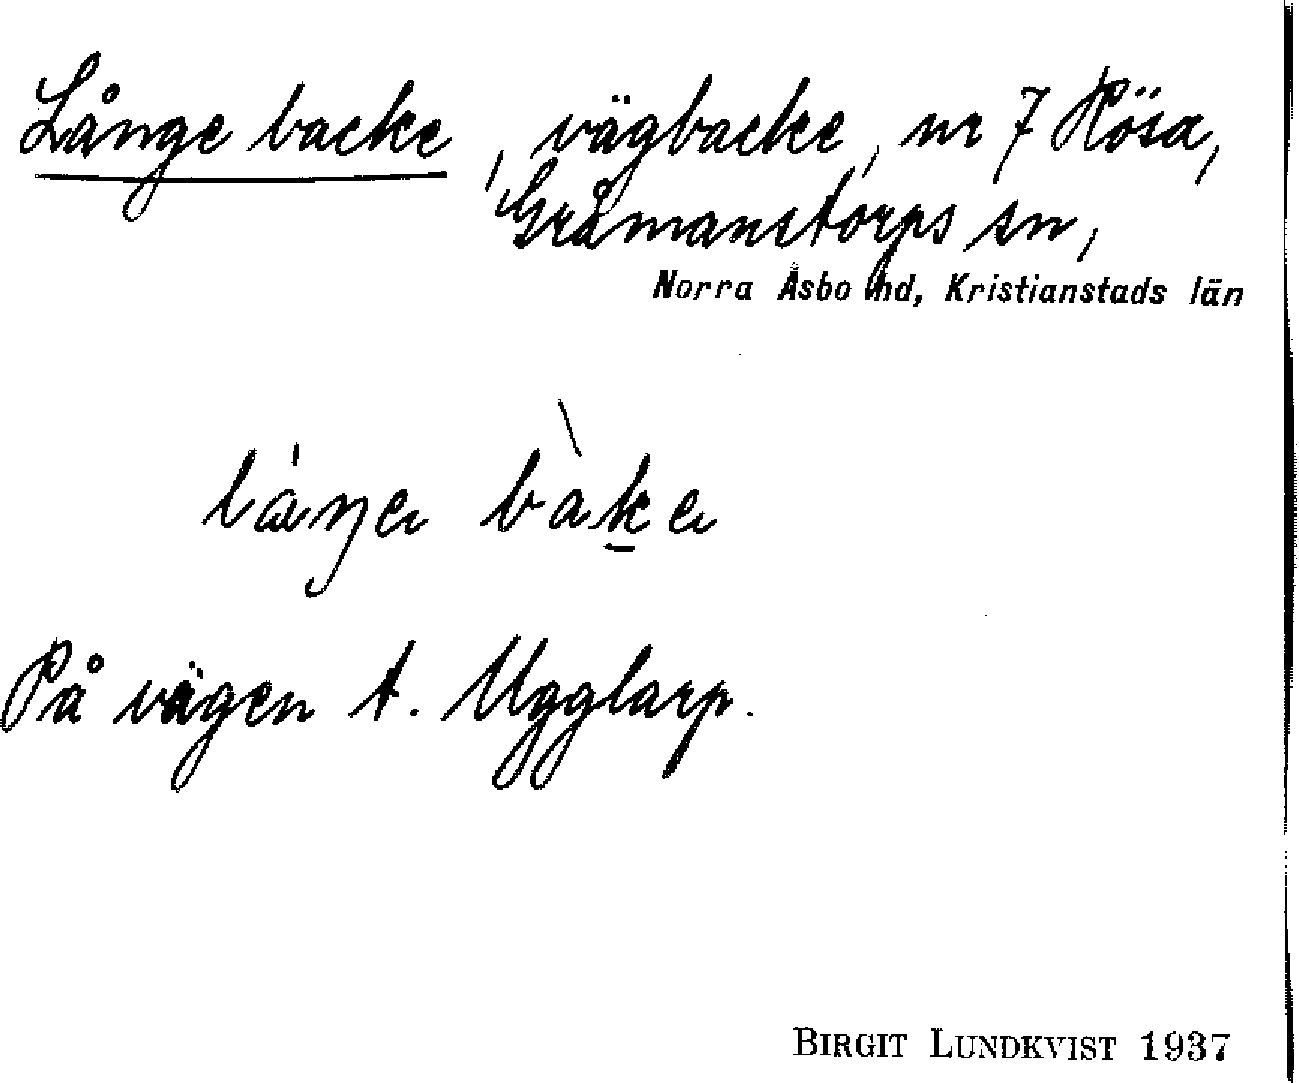 Långe backe, vägbacke, nr 7 Rösa,
Gråmanstorps sn,
Norra Åsbo hd, Kristianstads län
På vägen t. Ugglarp.
BIRGIT LUNDKVIST 1937